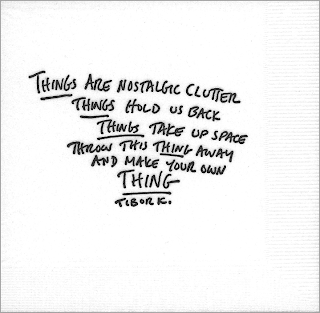 THINGS ARE NOSTALGIC CLUTTER
THINGS HOLD US BACK
THINGS TAKE UP SPACE
THROW THIS THING AWAY
AND MAKE YOUR OWN
THING
TIBOR K.